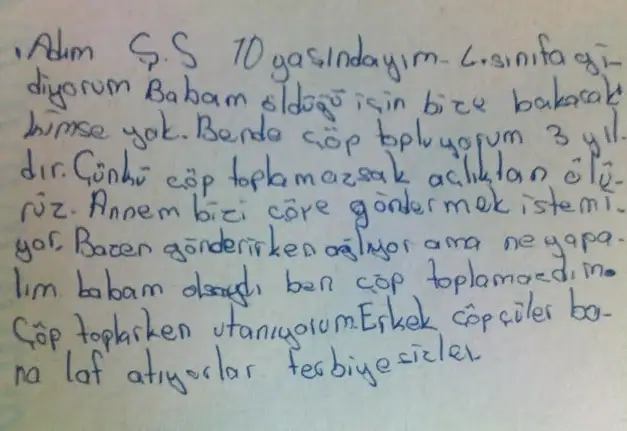 . Adım Ş.S 10 yaşındayım. 4.sınıfa gi-
diyorum Babam öldüğü için bize bakacak
kimse yok. Bende çöp topluyorum 3 yıl-
dır. Çünkü çöp toplamazsak açlıktan ölü-
rüz. Annem bizi çöpe göndermek istemi-
yor. Bazen gönderirken ağlıyor ama ne yapa-
lım babam olsaydı ben çöp toplamazdım.
Çöp toplarken utanıyorum Erkek çöpçüler ba-
na laf atıyorlar terbiyesizler